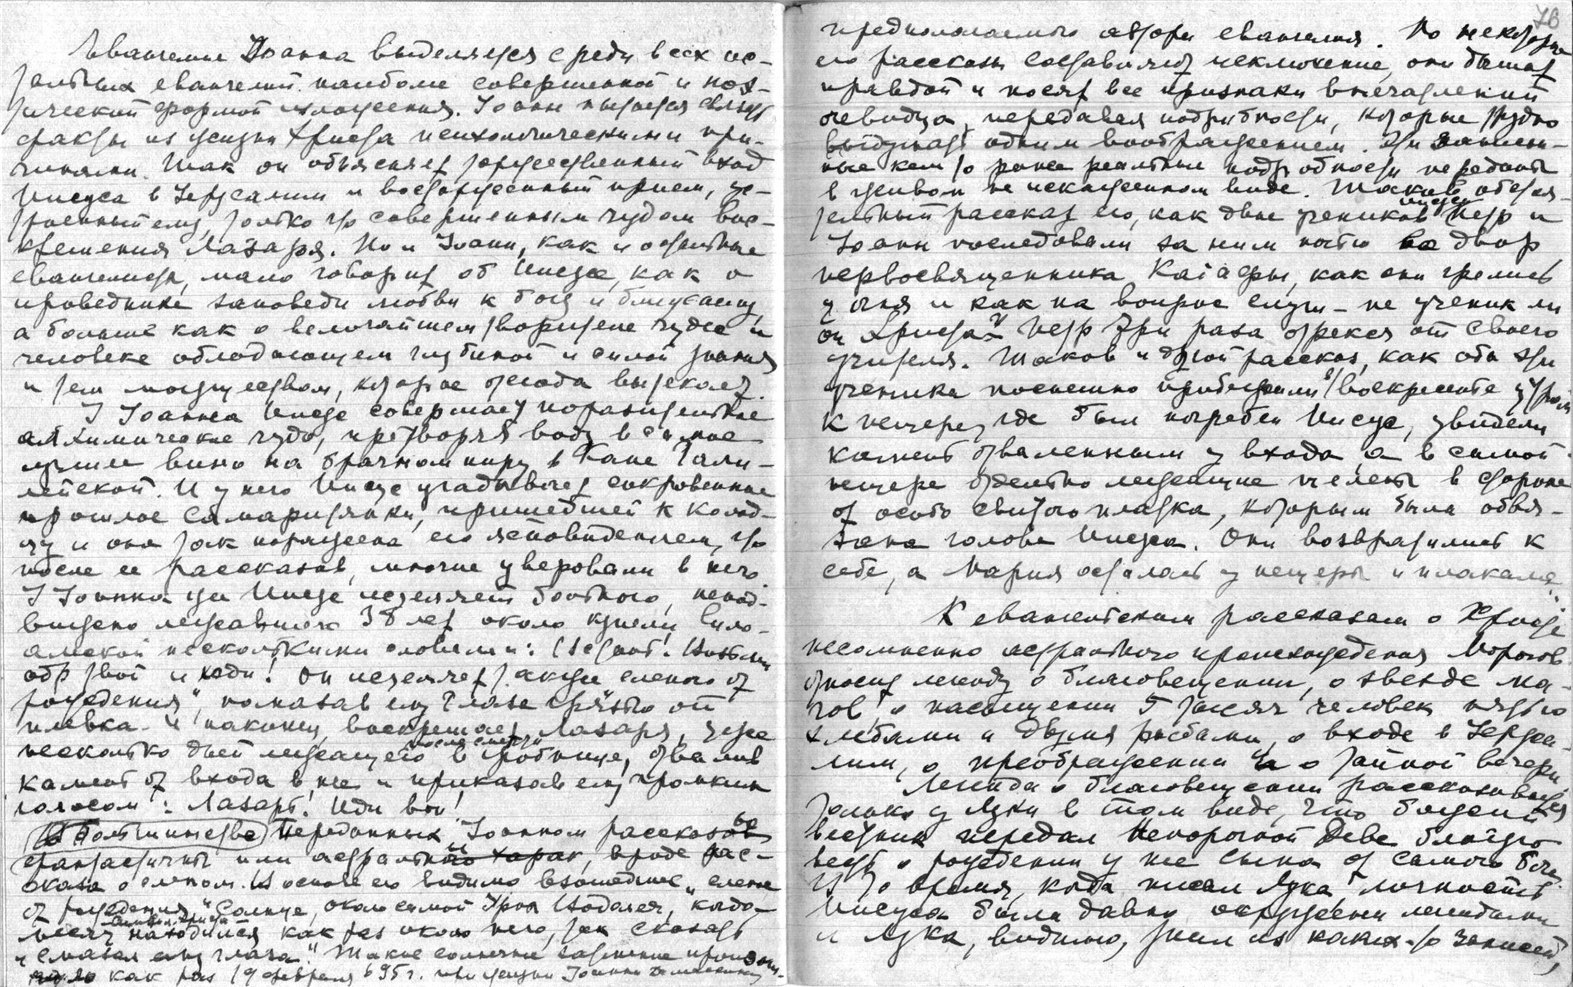 Евангелие Иоанна выделяется среди всех ос-
тальных евангелий наиболее совершенной и поэ-
тической формой изложения. Iоанн пытается связать
факты из жизни Христа психологическими при-
чинами. Так он объясняет торжественный вход
Иисуса в Iерусалим и восторженный прием, уст-
роенный ему, только что совершенным чудом вос-
крешения Лазаря. Но и Iоанн, как и остальные
евангелисты, мало говорит об Иисусе, как о
проведнике заповеди любви к богу и ближнему,
а больше как о величайшем творителе чудес и
человеке обладающем глубиной и силой знания
и тем могуществом, которое отсюда вытекает.
У Иоанна Иисус совершает поразительное
алхимическое чудо, претворяя воду в
лучшее вино на брачном пиру в Кане Гали-
лейской. И у него Иисус угадывает сокровенное
прошлое Самаритянки, пришедшей к колод-
цу и она так поражена его ясновидением, что
после ее рассказов, многие уверовали в него.
У Иоанна же Иисус исцеляет больного, непод-
вижно лежавшего 38 лет около купели Сило-
амской несколькими словами: Встань! Возьми
одр твой и ходи! Он исцеляет также слепого от
рождения", помазав ему глаза
плевка. И наконец воскрешает Лазаря, уже
несколько дней лежащего после смерти в гробнице, отвалив
камень от входа в нее и приказав ему громким
голосом: Лазарь! Иди вон!
В большинстве переданных Iоанном рассказов
фантастичны или астральны харак, вроде рас-
сказа о слепом. В основе его видимо взошедшее „слепое
от рождения" Солнце, около самой Урны Водолея, когда
находился как раз около него, так сказать
и смазал ему глаза." Такое солнечное затмение произош-
ло как раз 19 февраля 695 г. при жизни Iоанна Дамаскина
70
предполагаемого автора евангелия. Но некоторые
его рассказы составляют исключение, они дышат
правдой и носят все признаки впечатлений
очевидца, передавая подробности, которые трудно
выдумать одним воображением. Эти
кем то ранее реальные подробности переданы
в живом не искаженном виде. Таков
рассказ его, как двое учеников Иисуса Петр и
Iоанн последовали за ним ночью во двор
первосвященника Каiафы, как они грелись
у огня и как на вопрос слуги - не ученик ли
он Христа? Петр три раза отрекся от своего
учителя. Таков и другой рассказ, как оба эти
ученика поспешно прибежали в воскресенье утром
к пещере, где был погребен Иисус, увидели
камень отваленным у входа, а в самой
пещере отдельно лежащие пелены в стороне
от особо свитого платка, которым была обвя-
зана голова Иисуса. Они возвратились к
себе, а Мария осталась у пещеры и плакала."
К евангельским рассказам о Христе
несомненно астрального происхождения Морозов
относит легенду о благовещении, о звезде ма-
гов, о насыщении 5 тысяч человек пятью
хлебами и двумя рыбами, о входе в Iеруса-
лим, о преображении и о тайной вечери.
Легенда о благовещении рассказывается
только у Луки в том виде, что
вестник передал Непорочной Деве благую
весть о рождении у нее сына от самого бога.
В то время, когда писал Лука личность
Иисуса была давно окружена легендами
и Лука, видимо, знал из каких-то записей,